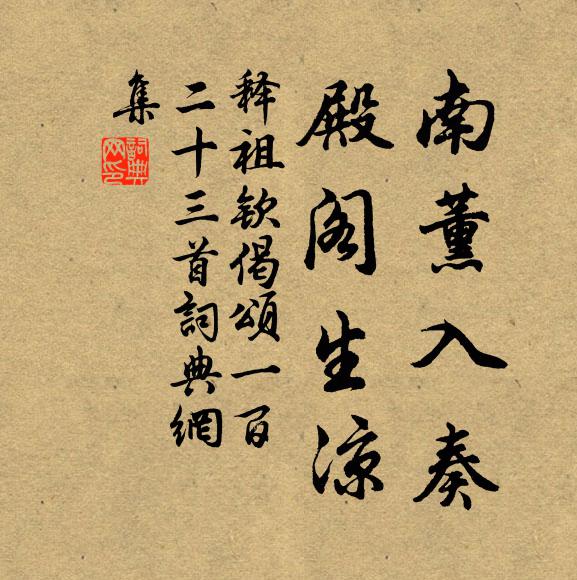 南薰入奏
殿阁生涼
释祖欽偈頌一百
二十三首詞典網
集
詞典
网印